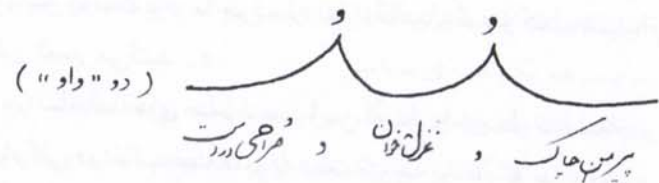 و و
( دو " واو " )
پیرهن چاک و غزلخوان و صراحی در دست